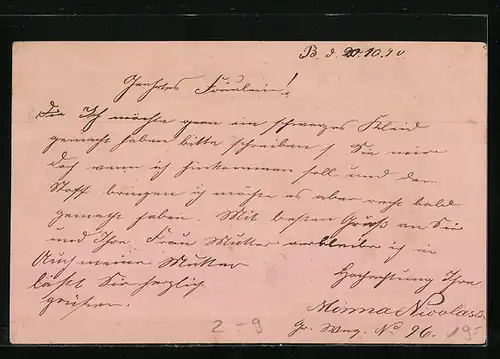 B. d. 20.10.90.
Geehrtes Fräulein!
Die Ich möchte gern ein schwarzes Kleid
gemacht haben bitte schreiben Sie mir
doch wenn ich hinkommen soll und den
Stoff bringen ich möchte es aber recht bald
gemacht haben. Mit besten Gruß an Sie
und Ihre Frau Mutter verbleibe ich in
Auch meine Mutter
Hochachtung Ihre
läßt Sie herzlich
grüßen.
Minna Nicolas
Gr. Weg. No 96.
2-9
19-